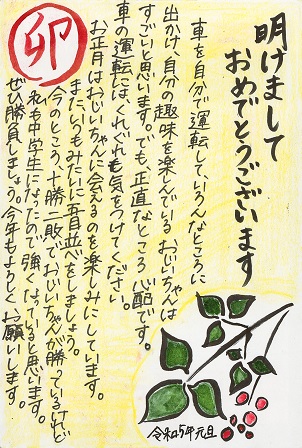 明けまして
おめでとうございます
車を自分で運転していろんなところに
出かけ、自分の趣味を楽しんでいるおじいちゃんは
すごいと思います。でも、正直なところ心配です。
車の運転には、くれぐれも気をつけてください。
お正月はおじいちゃんに会えるのを楽しみにしています。
また、いつもみたいに五目並べをしましょう。
今のところ、十勝二敗でおじいちゃんが勝っているけれど
私も中学生になったので強くなっていると思います。
ぜひ勝負しましょう。今年もよろしくお願いします。
卯
令和5年元旦